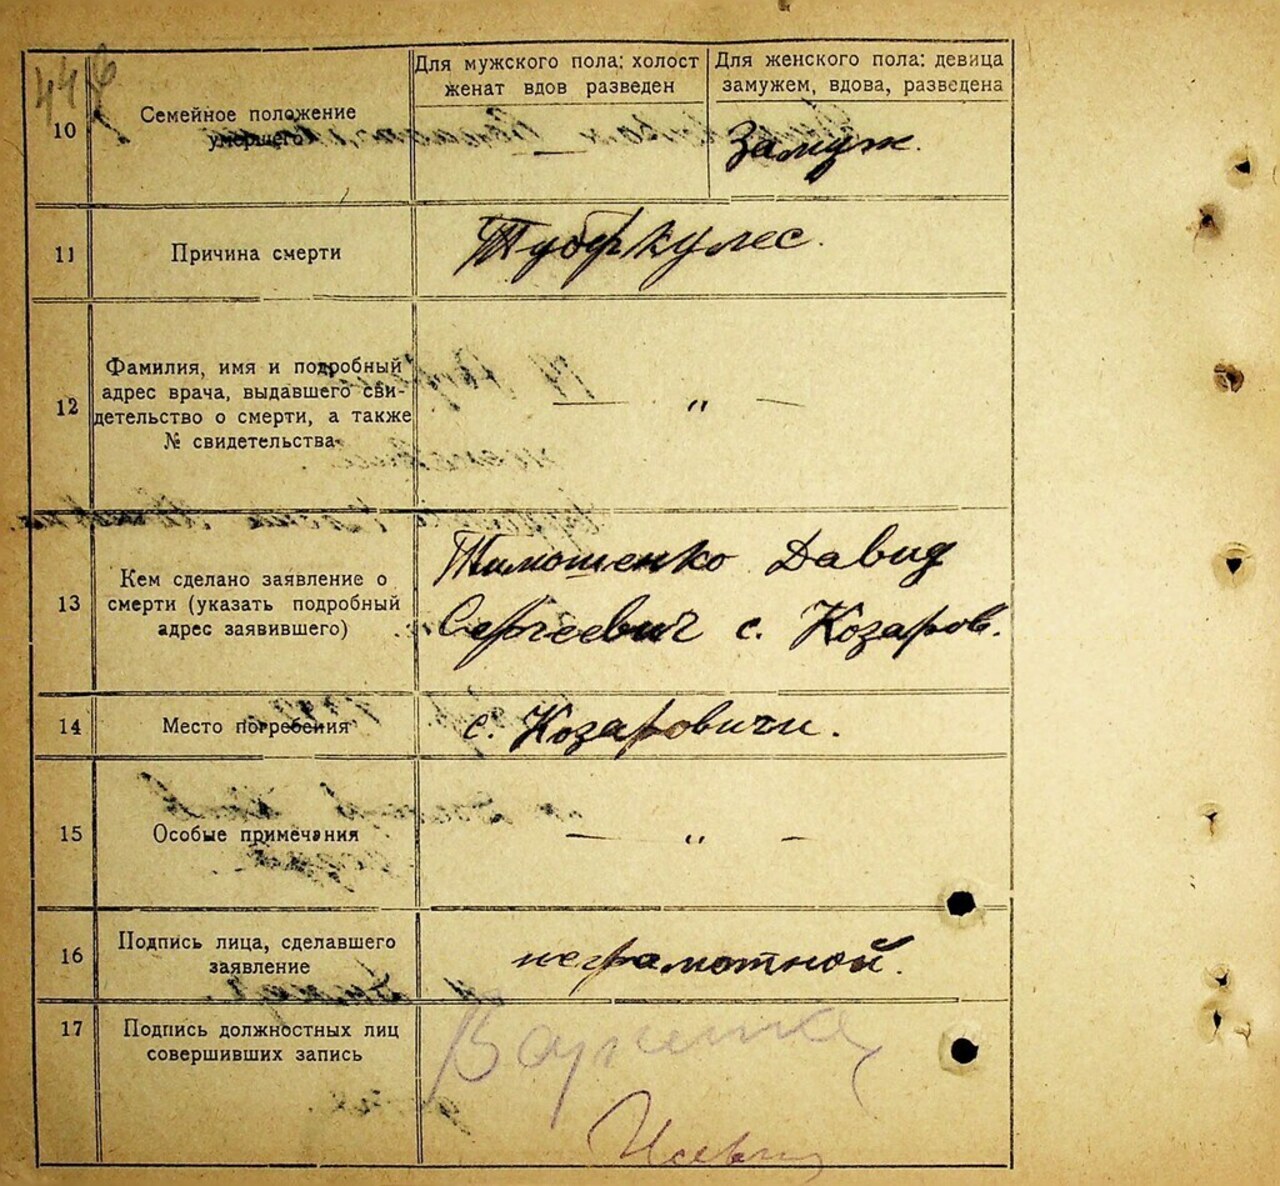 446
Для мужского пола: холост
женат вдов разведен
Для женского пола: девица
замужем, вдова, разведена
10
Семейное положение
умершего
—
Замуж.
11
Причина смерти
Туберкулес.
12
Фамилия, имя и подробный
адрес врача, выдавшего сви-
детельство о смерти, а также
№ свидетельства
— „ —
13
Кем сделано заявление о
смерти (указать подробный
адрес заявившего)
Тимошенко Давид
Сергеевич с. Козаров.
14
Место погребения
с. Козаровичи.
15
Особые примечания
— „ —
16
Подпись лица, сделавшего
заявление
неграмотной.
17
Подпись должностных лиц
совершивших запись